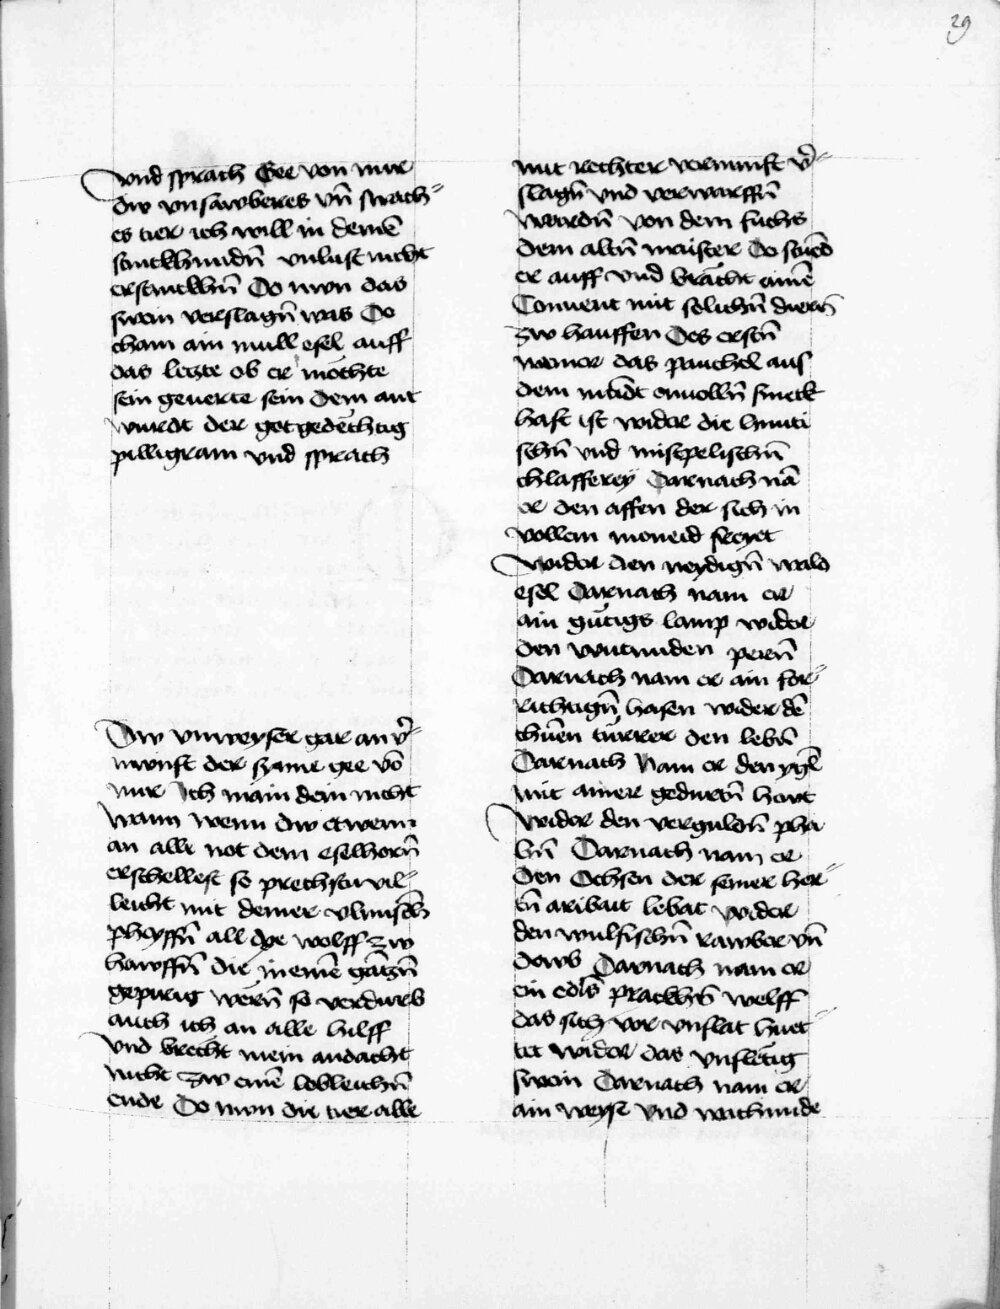 29
vnd sprach Gee von mir
dw vnsawberes vn̄ swach=
es tier ich will in deinē
stinckhundn̄ vnlust nicht
ersticklhn̄ Do nun das
swein verslagn̄ was Do
cham ain mull esel auff
das letzte ob er möchte
sein geuerte sein Dem ant
wurdt der gotgedechtig
pilligram vnd sprach
Dw vnweyser gar an v̄=
nunft der zame gee vō
mir Ich main dein nicht
wann wenn dw etwenn
an alle not dem eselhorn̄
erschellest so prechstu vil=
leicht mit deiner
pheyffn̄ all dye wolff zw
hawffn̄ die in einē gātzn̄
gepirg wern̄ so verdurb
auch ich an alle hilff
Vnd brecht mein andacht
nicht zw einē lobleichn̄
ende Do nun die tier alle
mit rechter vernunft v̄=
slagn̄ vnd verworffn̄
wurdn̄ von dem fuchs
dem altn̄ maister Do stūed
er auff vnd bracht einē
Conuent mit solichn̄ diern̄
zw hauffen Des erstn̄
namer das panthel aus
dem mūdt enwolln̄ smeck
haft ist wider die hunti
schn̄ vnd misepelischn̄
chlafferey Darnach nā
er den affen der sich in
vollem moneid freyet
wider den neydign̄ wald
esel Darnach nam er
ain gütigs lamp wider
den wutunden pern̄
Darnach nam er ain for=
richtign̄ hasen wider dē
chüen türrer den lebn̄
Darnach Nam er den ygl̄
mit ainer gedurtn̄ hout
wider den verguldn̄ pha
bn̄ Darnach nam er
den Ochsen der seiner her=
tn̄ aribait lebat wider
den wulfischn̄ rawber vn̄
dewb Darnach nam er
ein edls pracklhs welff
das sich vor vnflat huet=
tet wider das vnfletig
swein Darnach nam er
ain weyse vnd wachunde